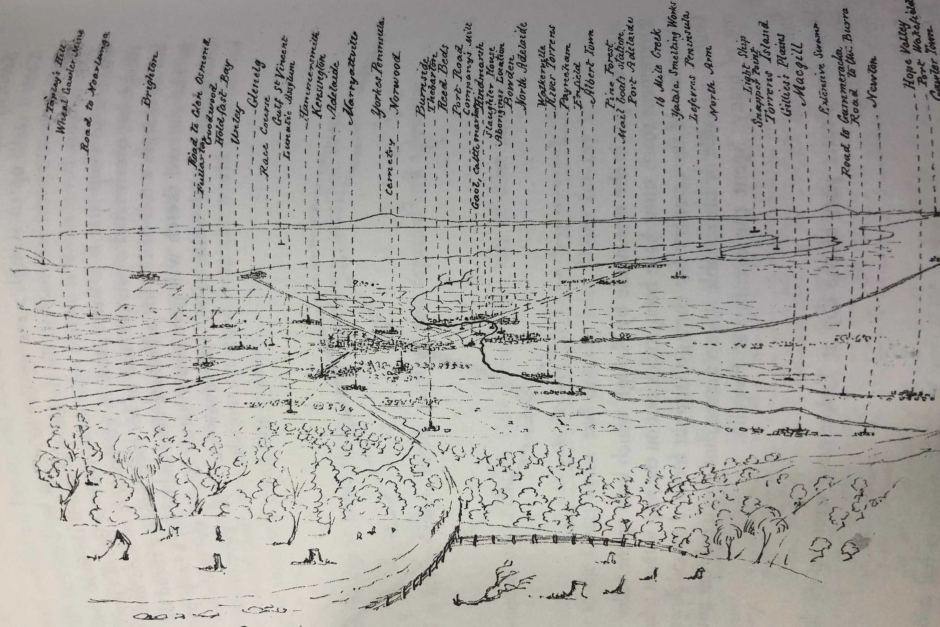 Taylor's Hill
Wheal Gawler Mine
Road to Noarlunga
Brighton
Road to Glen Osmond
Fullarton
Goodwood
Holdfast Bay
Unley
Glenelg
Race Course
Gulf St Vincent
Lunatic Asylum
Hammersmith
Kensington
Adelaide
Marryatville
Yorkes Peninsula
Norwood
Cemetery
Burnside
Thebarton
Reed Beds
Port Road
Company's Mill
Hindmarsh
Gaol, Cattle market
Slaughter House
Aborigines Location
Bowden
North Adelaide
Walkerville
River Torrens
Payneham
Enfield
Albert Town
Pine Forest
Mail boat's station
Port Adelaide
16 Mile Creek
Yatala Smelting Works
Lefevres Peninsula
North Arm
Light Ship
Snapper Point
Torrens Island
Gillies Plains
Magill
Extensive Swamp
Road to Gummeracka
Road to the Burra
Newton
Hope Valley
Port Wakefield
Gawler Town